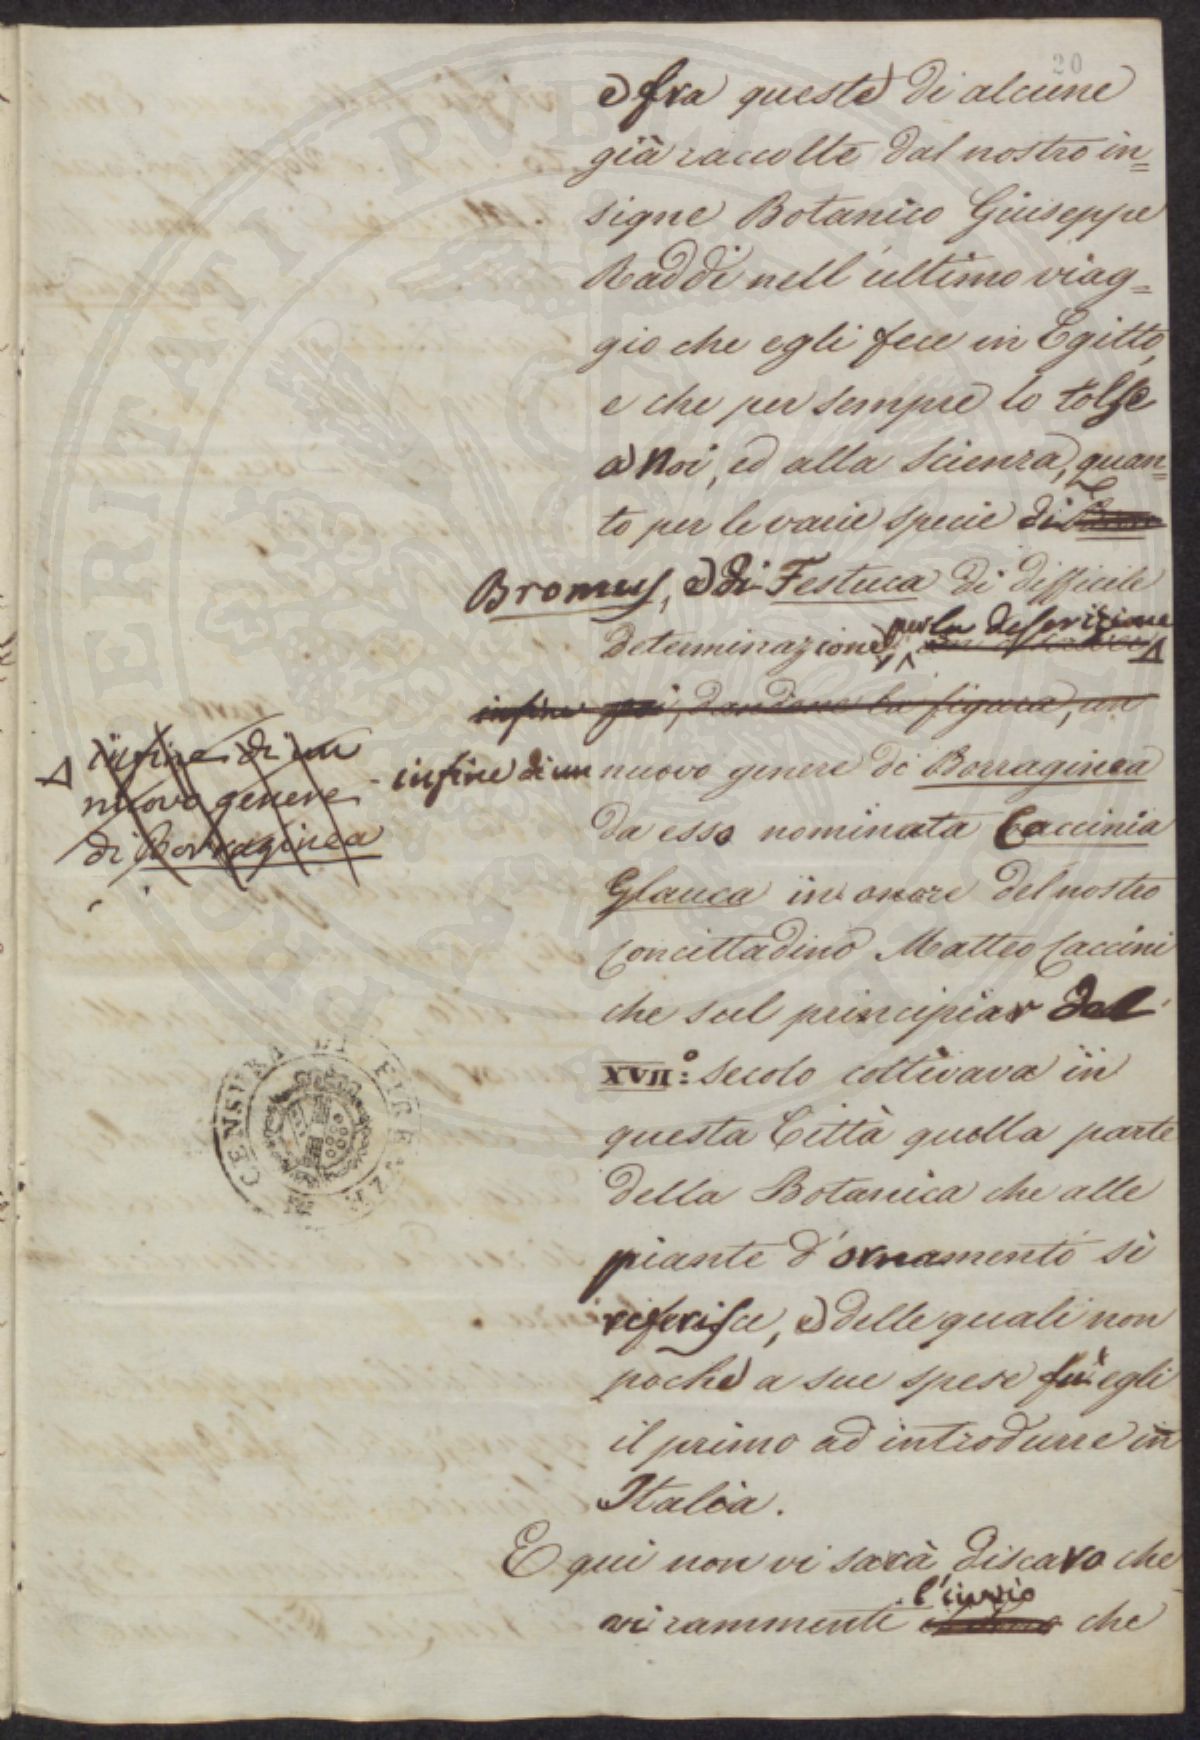 20
e fra queste di alcune
già raccolte dal nostro in=
signe Botanico Giuseppe
Raddi nell'ultimo viag=
gio che egli fece in Egitto,
e che per sempre lo tolse
a noi, ed alla Scienza, quan=
to per le varie specie di
Bromus, e di Festuca di difficile
determinazione, per la descrizione
infine poi, dandone la figura, un
Δ infine di un
nuovo genere
di Borraginea
infine di un nuovo genere di Borraginea
da esso nominata Caccinia
Glauca in onore del nostro
concittadino Matteo Caccini
che sul principiar del
XVII.º secolo coltivava in
questa Città quella parte
della Botanica che alle
piante d'ornamento si
riferisce, e delle quali non
poche a sue spese fu egli
il primo ad introdurre in
Italia.
E qui non vi sarà discaro che
vi rammenti l'invio che
CENSURA DI FIRENZE
PERITATI PUBLICAE